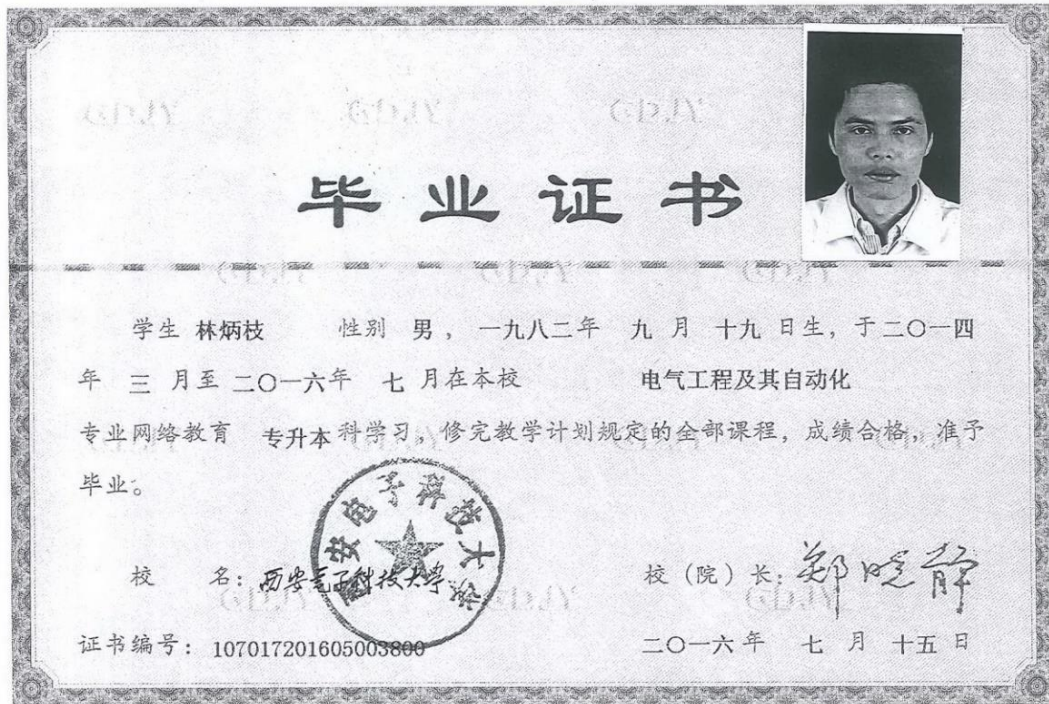 毕业证书
学生 林炳枝 性别 男，一九八二年 九 月 十九 日生，于二〇一四
年 三 月至 二〇一六年 七 月在本校 电气工程及其自动化
专业网络教育 专升本 科学习，修完教学计划规定的全部课程，成绩合格，准予
毕业。
西安电子科技大学
校 名：西安电子科技大学
校（院）长：郑晓静
证书编号：107017201605003800
二〇一六年 七 月 十五 日